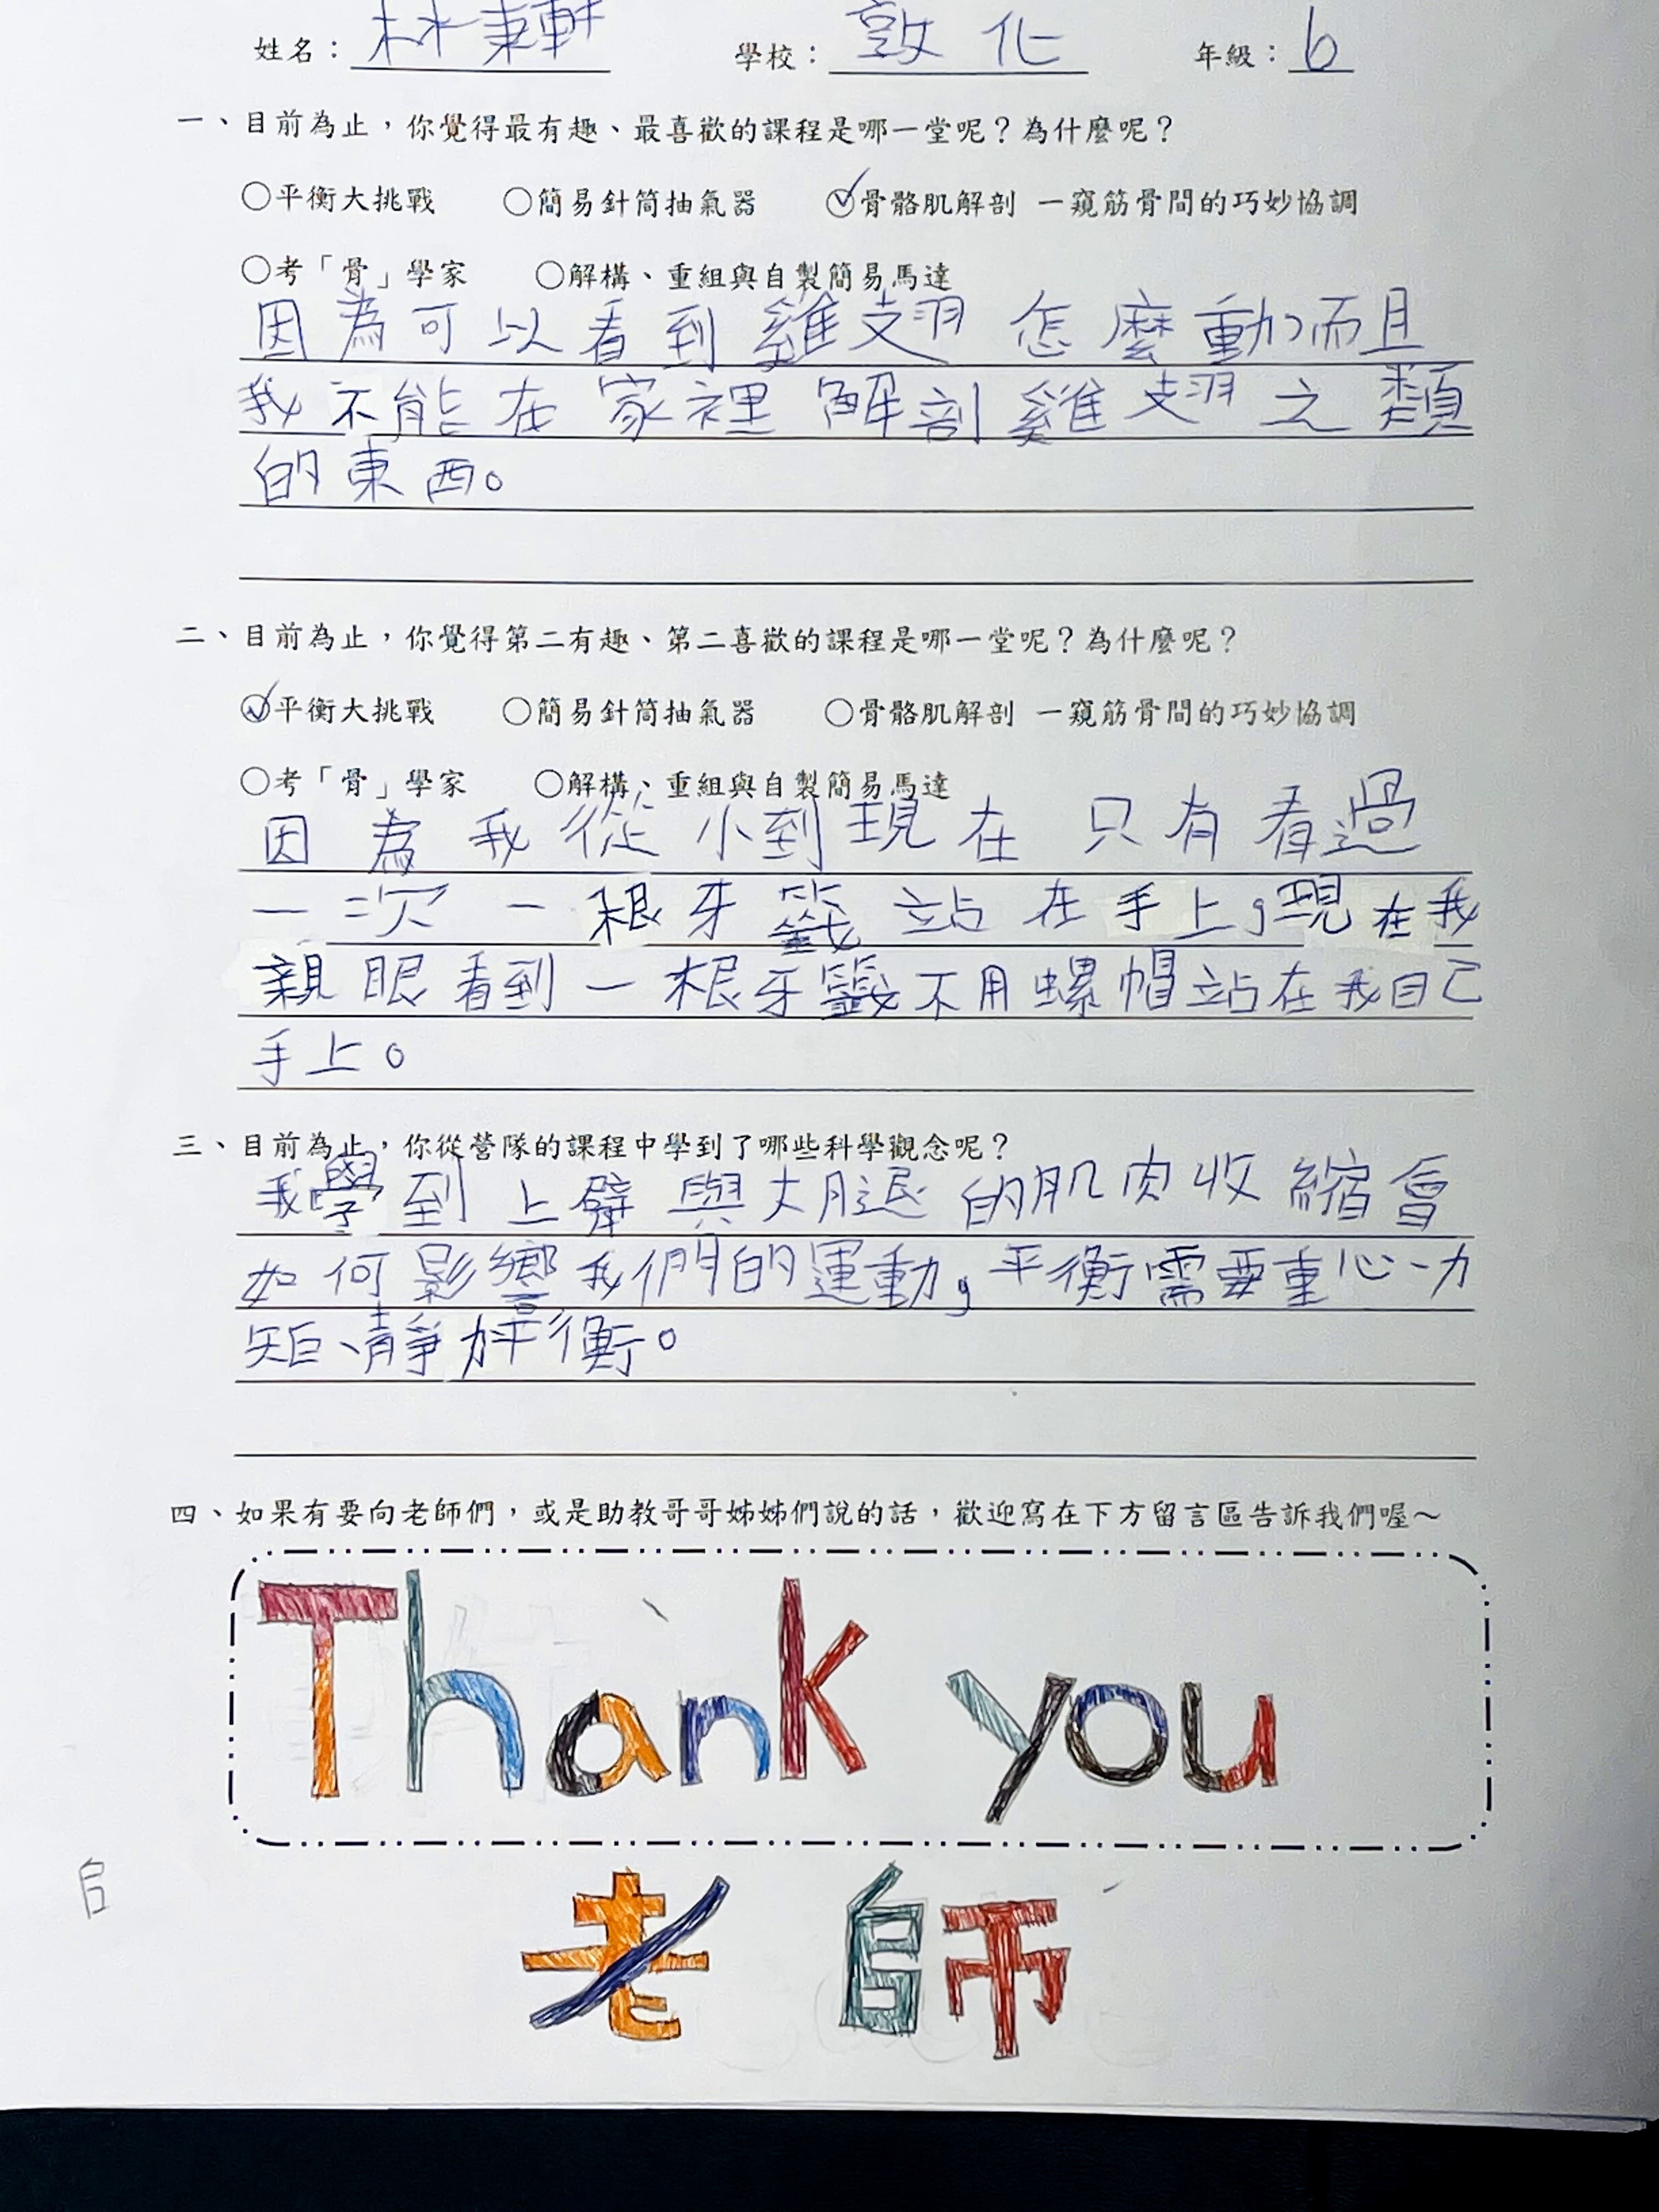 姓名：林秉軒 學校：敦化 年級：6
一、目前為止，你覺得最有趣、最喜歡的課程是哪一堂呢？為什麼呢？
○平衡大挑戰 ○簡易針筒抽氣器 ○骨骼肌解剖 一窺筋骨間的巧妙協調
○考「骨」學家 ○解構、重組與自製簡易馬達
因為可以看到雞翅怎麼動而且
我不能在家裡解剖雞翅之類
的東西。
二、目前為止，你覺得第二有趣、第二喜歡的課程是哪一堂呢？為什麼呢？
○平衡大挑戰 ○簡易針筒抽氣器 ○骨骼肌解剖 一窺筋骨間的巧妙協調
○考「骨」學家 ○解構、重組與自製簡易馬達
因為我從小到現在只有看過
一次一根牙籤站在手上，現在我
親眼看到一根牙籤不用螺帽站在我自己
手上。
三、目前為止，你從營隊的課程中學到了哪些科學觀念呢？
我學到上臂與大腿的肌肉收縮會
如何影響我們的運動，平衡需要重心、力
矩、靜力平衡。
四、如果有要向老師們，或是助教哥哥姊姊們說的話，歡迎寫在下方留言區告訴我們喔～
Thank you
老師